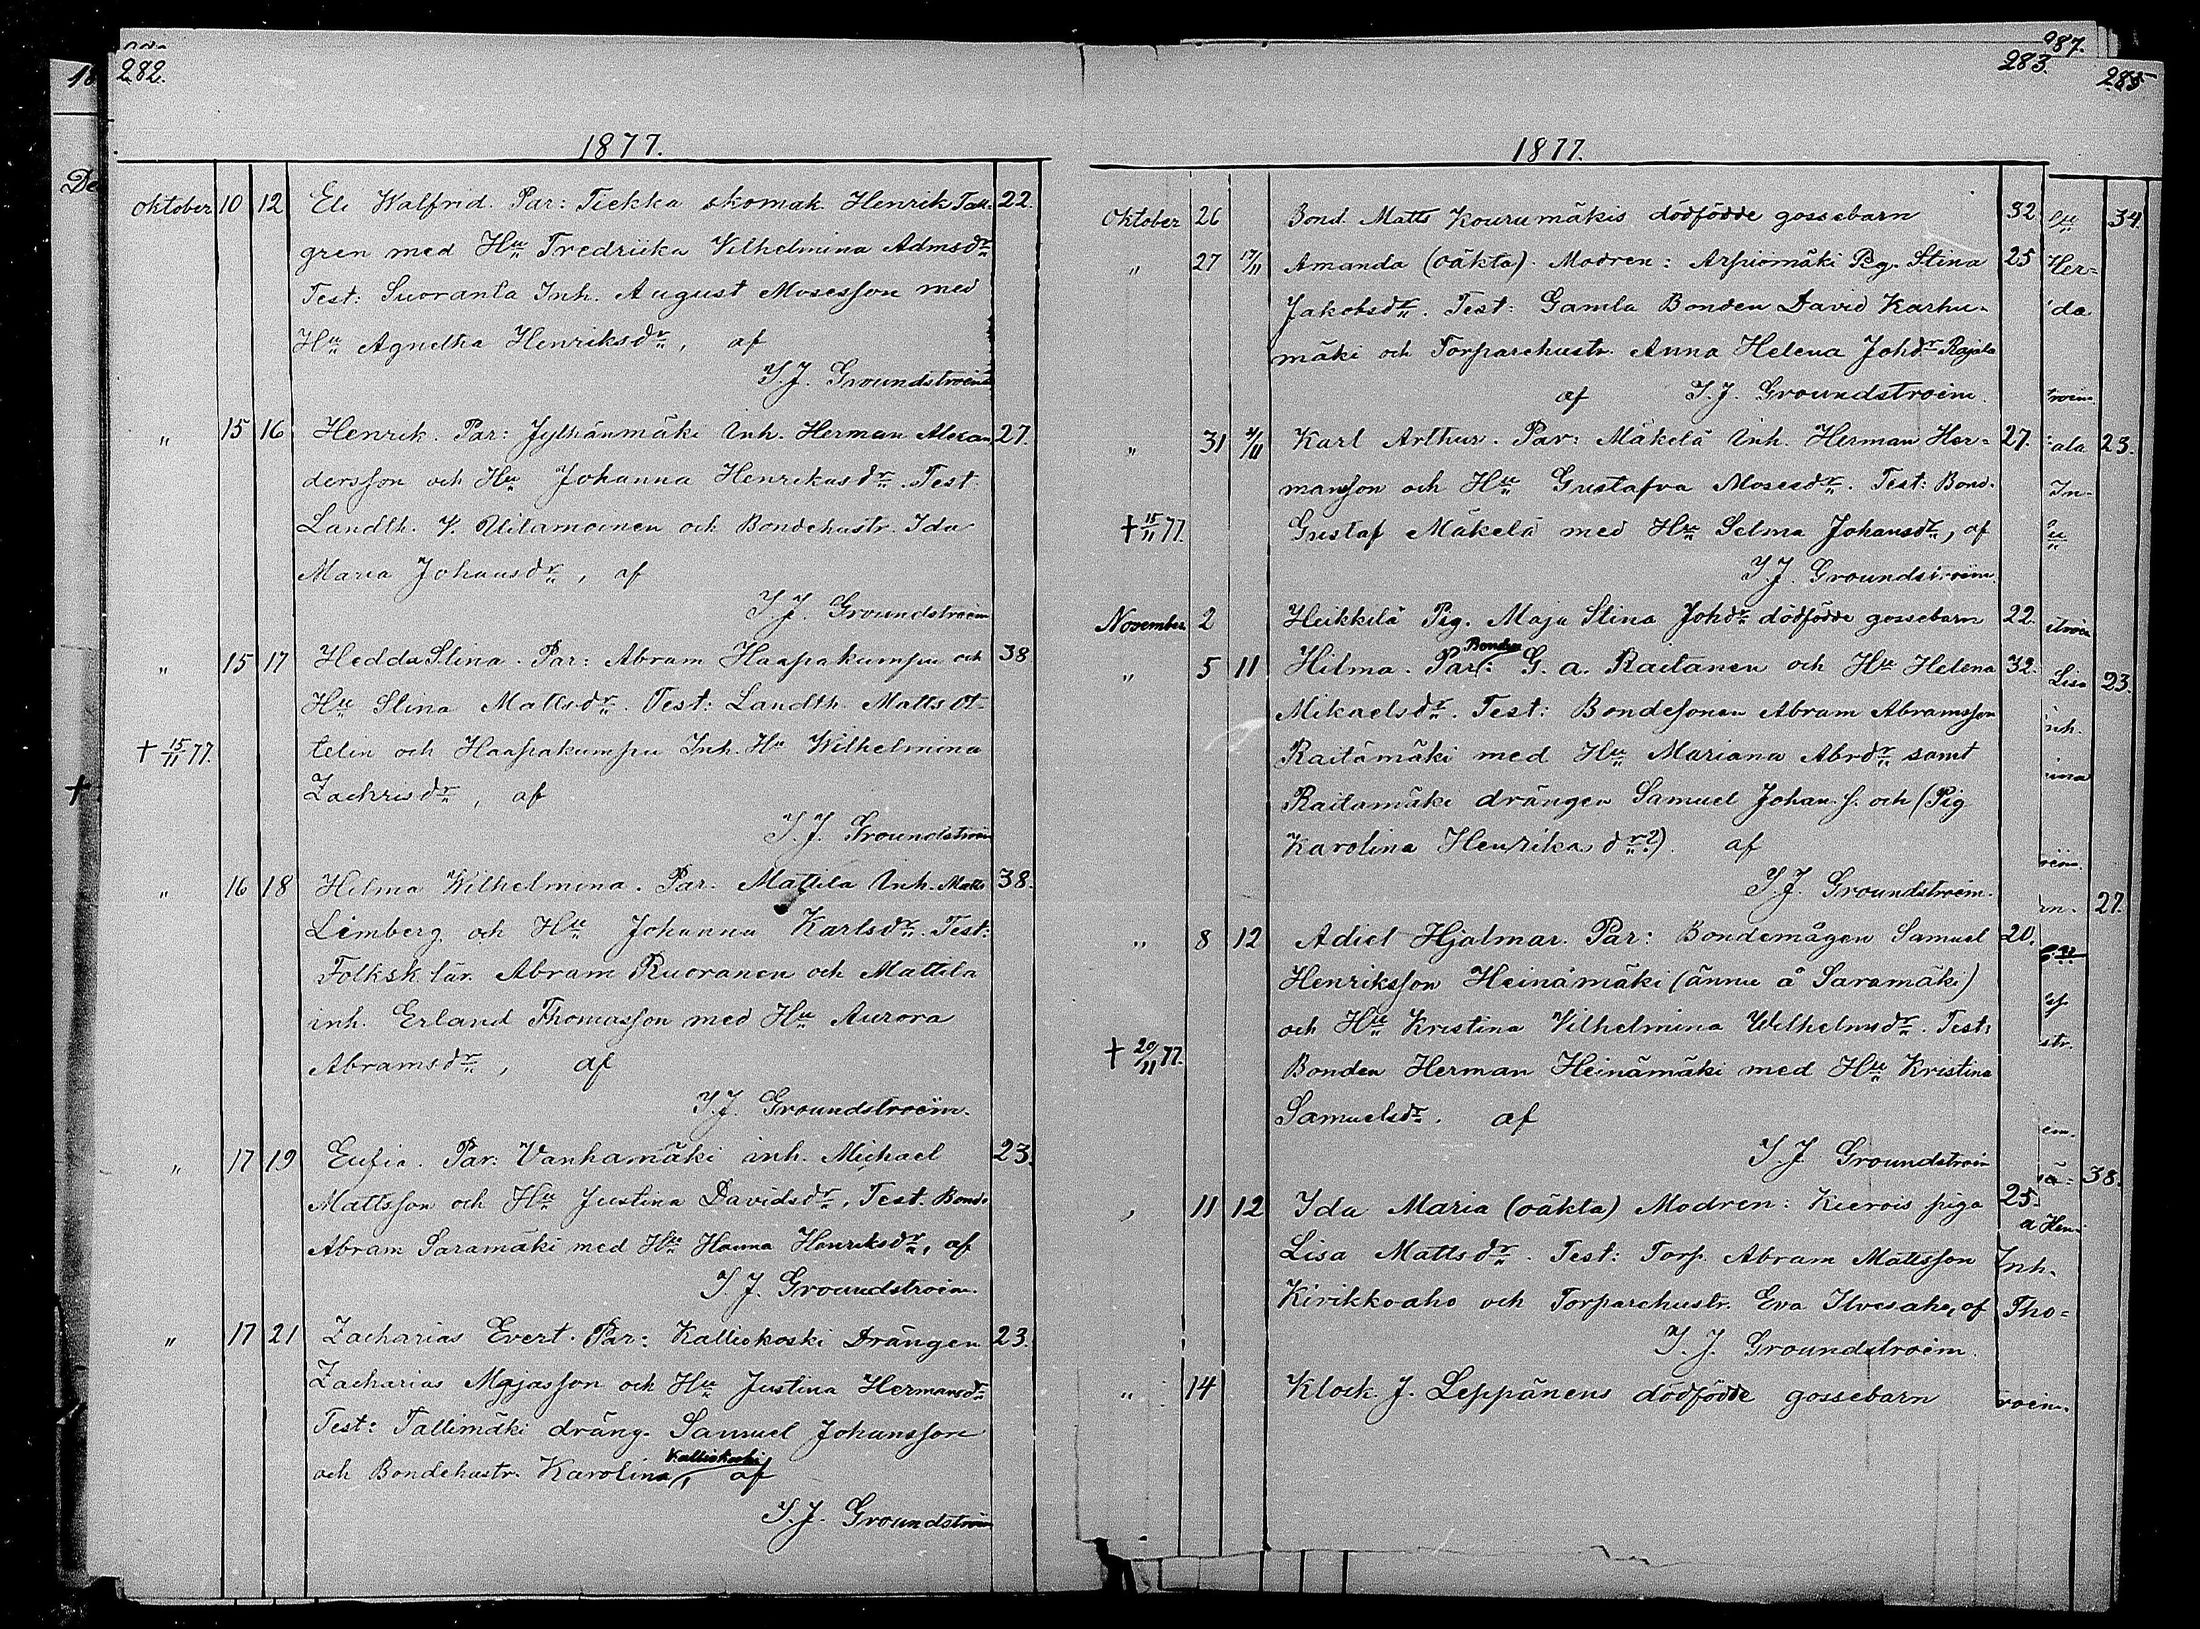 282.
1877.
Oktober 10 12 Eli Walfrid. Par: Tiekka skomak. Henrik Tall- 22.
gren med Hu Fredrika Vilhelmina Admsdr
Test: Suoranta Inh. August Mosesson med
Hu Agnetha Henriksdr, af
I. J. Groundstroem
" 15 16 Henrik. Par: Jylhänmäki Inh. Herman Alexan 27.
dersson och Hu Johanna Henrikasdr. Test.
Landth. och Bondehustr. Ida
Maria Johansdr, af
I J Groundstroem
" 15 17 Hedda Stina. Par: Abram Haapakumpu och 38
Hu Stina Mattsdr. Test: Landth. Matts Ot-
† 15/11 77. telin och Haapakumpu Inh. Hu Wilhelmina
Zachrisdr, af
I. J. Groundstroem
" 16 18 Hilma Wilhelmina. Par. Mattila Inh. Matts 38.
Limberg och Hu Johanna Karlsdr. Test:
Folksk. lär. Abram Ruoranen och Mattila
inh. Erland Thomasson med Hu Aurora
Abramsdr, af
I. J. Groundstroem.
" 17 19 Eufia. Par: Vanhamäki inh. Michael 23.
Mattsson och Hu Justina Davidsdr. Test. Bond.
Abram Saramäki med Hu Hanna Henriksdr, af
I J. Groundstroem.
" 17 21 Zacharias Evert. Par: Kalliokoski Drängen 23.
Zacharias Majasson och Hu Justina Hermansdr
Test: Tallimäki dräng. Samuel Johansson
och Bondehustr. Karolina Kalliokoski, af
I. J. Groundstroem
283.
1877.
Oktober 26 Bond. Matts Kourumäkis dödfödde gossebarn 32
" 27 17/11 Amanda (oäkta). Modren: Arpiomäki Pig. Stina 25
Jakobsdr. Test: Gamla Bonden David Karhu-
mäki och Torparehustr. Anna Helena Johdr Rajala
af I. J. Groundstroem.
" 31 4/11 Karl Arthur. Par: Mäkelä Inh. Herman Her- 27.
mansson och Hu Gustafva Mosesdr. Test: Bond.
† 15/11 77. Gustaf Mäkelä med Hu Selma Johansdr, af
I. J. Groundstroem.
November 2 Heikkilä Pig. Maja Stina Johdr dödfödde gossebarn 22.
" 5 11 Hilma. Par: Bonden G. A. Raitanen och Hu Helena 32.
Mikaelsdr. Test: Bondesonen Abram Abramsson
Raitamäki med Hu Mariana Abrdr samt
Raitamäki drängen Samuel Johan. s. och (Pig
Karolina Henrikasdr?) af
I. J. Groundstroem.
" 8 12 Adiel Hjalmar. Par: Bondemågen Samuel 20.
Henriksson Heinämäki (ännu å Saramäki)
och Hu Kristina Vilhelmina Wilhelmsdr. Test:
† 20/11 77. Bonden Herman Heinämäki med Hu Kristina
Samuelsdr. af
I J Groundstroem
" 11 12 Ida Maria (oäkta) Modren: Kierois piga 25.
Lisa Mattsdr. Test: Torp. Abram Mattsson
Kirikkoaho och Torparehustr. Eva Ilvesaho, af
I. J. Groundstroem.
" 14 Klock. J. Leppänens dödfödde gossebarn
287.
285
34.
Her-
da
roem.
ala 23.
In-
stroem
Lisa 23.
inh.
ina
roem.
27.
str.
em.
38.
a Hen-
Inh.
Tho-
roem.